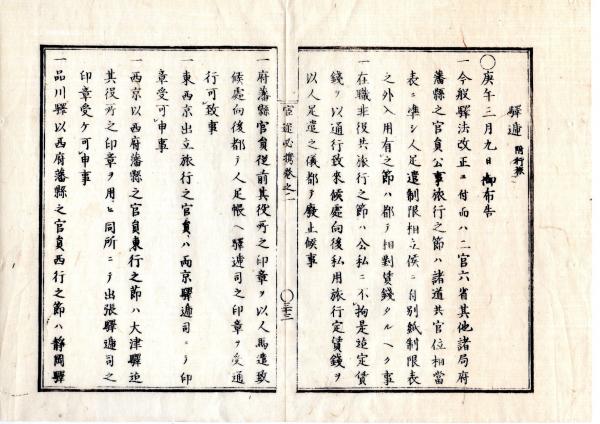 驛逓 附行旅
◯庚午三月九日御布告
一今般驛法改正ニ付而ハ二官六省其他諸局府
藩縣之官員公事旅行之節ハ諸道共官位相當
表ニ準シ人足遣制限相立候ニ付別紙制限表
之外入用有之節ハ都テ相對賃錢タルヘク事
一在職非役共旅行之節ハ公私ニ不拘是迠定賃
錢ヲ以通行致來候處向後私用旅行定賃錢ヲ
以人足遣之儀都テ廢止候事
官途必携巻之二
◯三十二
一府藩縣官員從前其役所之印章ヲ以人馬遣致
候處向後都テ人足帳ヘ驛逓司之印章ヲ受通
行可致事
一東西京出立旅行之官員ハ兩京驛逓司ニテ印
章受可申事
一西京以西府藩縣之官員東行之節ハ大津驛迠
其役所之印章ヲ用ヒ同所ニテ出張驛逓司之
印章受ケ可申事
一品川驛以西府藩縣之官員西行之節ハ靜岡驛